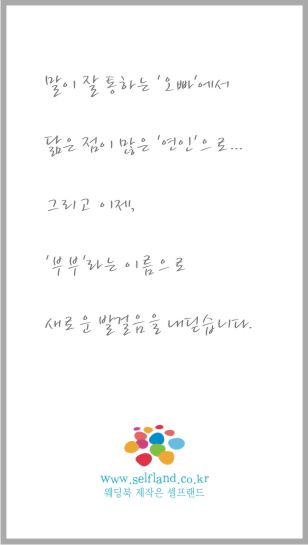 말이 잘 통하는 '오빠'에서
닮은 점이 많은 '연인'으로...
그리고 이제,
'부부'라는 이름으로
새로운 발걸음을 내딛습니다.
www.selfland.co.kr
웨딩북 제작은 셀프랜드